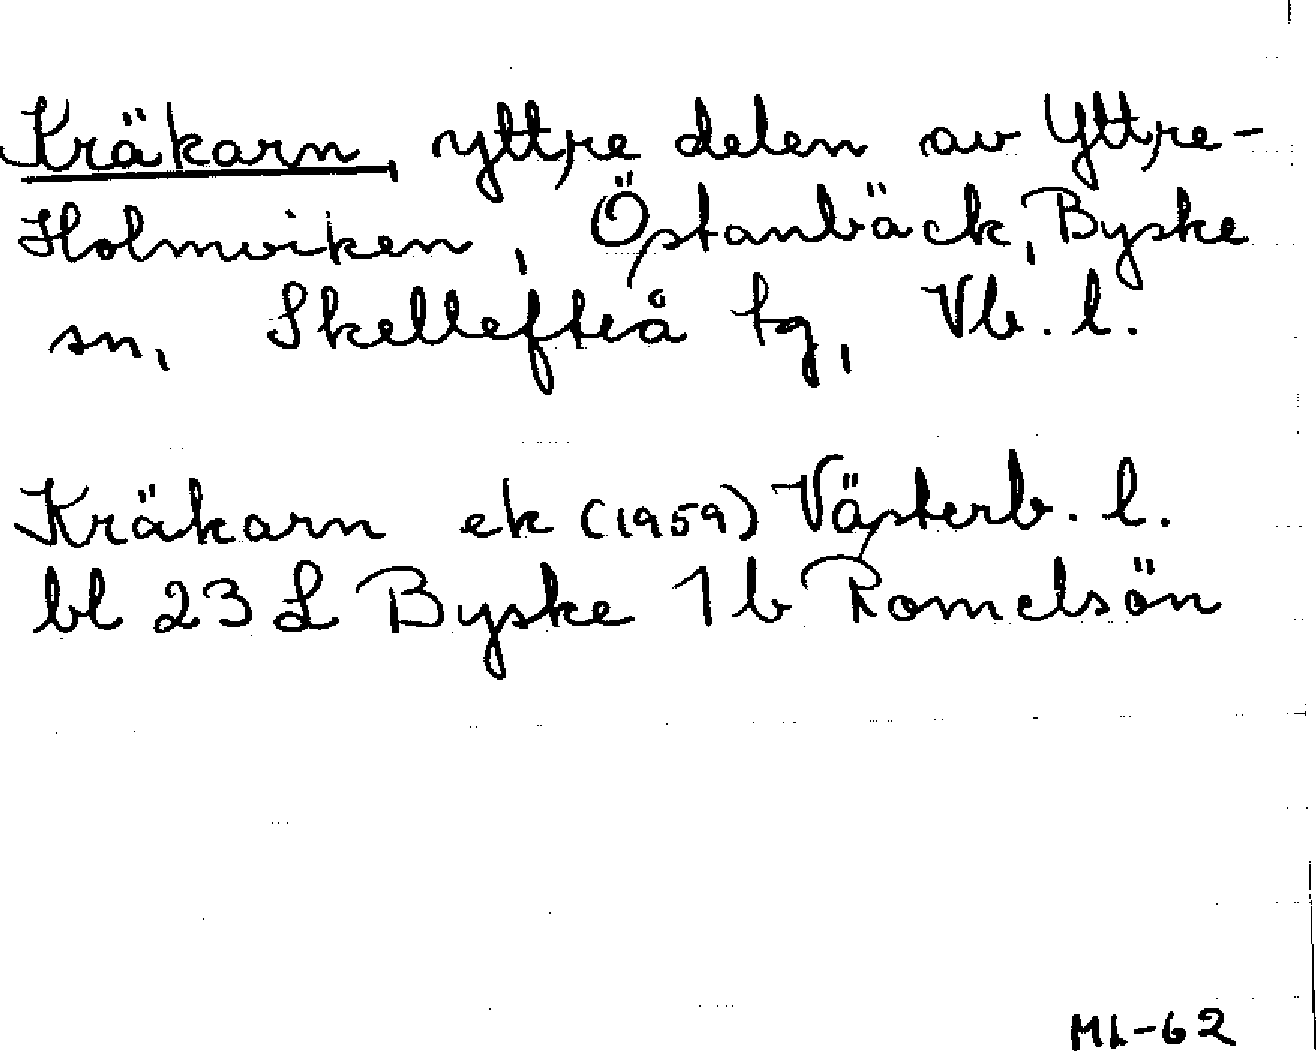 Kräkarn, yttre delen av Yttre-
Holmviken, Östanbäck, Byske
sn, Skellefteå tg, Vb. l.
Kräkarn ek (1959) Västerb. l.
bl 23 L Byske 1 b Romelsön
ML-62